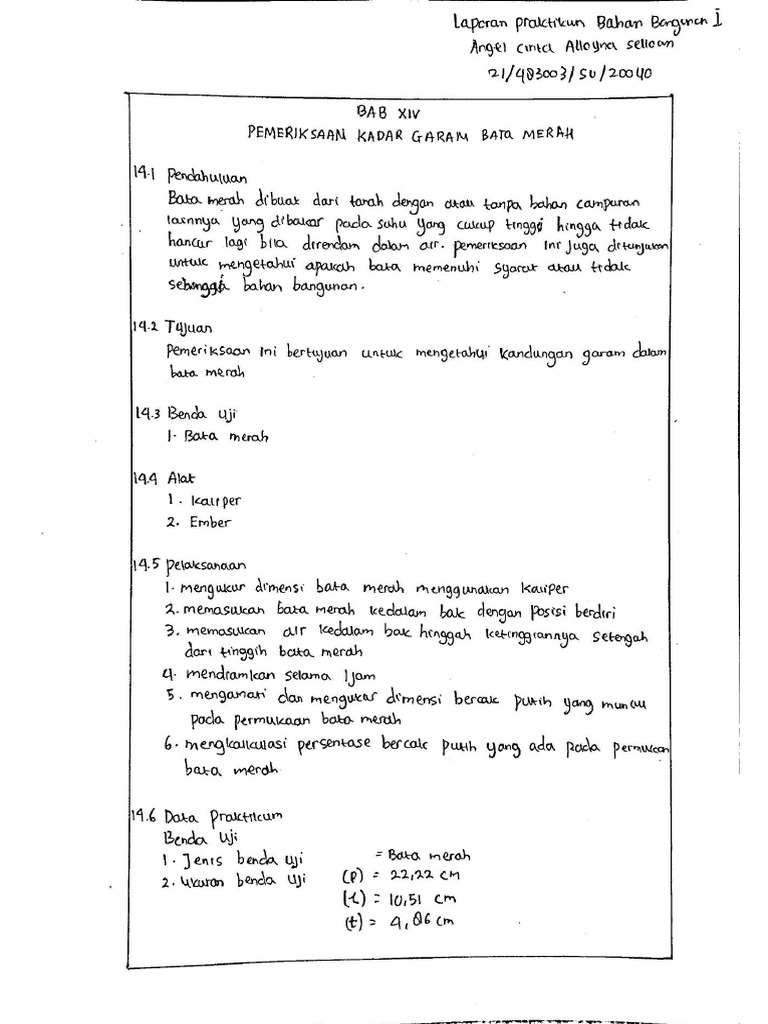 Laporan praktikun Bahan Bangunan I
Angel cinta Alloyna selloan
21/483003/SV/20040
BAB XIV
PEMERIKSAAN KADAR GARAM BATA MERAH
14.1 Pendahuluan
Bata merah dibuat dari tanah dengan atau tanpa bahan campuran
lainnya yang dibakar pada suhu yang cukup tinggi hingga tidak
hancur lagi bila direndam dalam air. pemeriksaan ini juga ditunjukan
untuk mengetahui apakah bata memenuhi syarat atau tidak
sebangga bahan bangunan.
14.2 Tujuan
Pemeriksaan ini bertujuan untuk mengetahui kandungan garam dalam
bata merah
14.3 Benda uji
1. Bata merah
14.4 Alat
1. Kaliper
2. Ember
14.5 pelaksanaan
1. mengukur dimensi bata merah menggunakan kaliper
2. memasukan bata merah kedalam bak dengan posisi berdiri
3. memasukan air kedalam bak hinggah ketinggiannya setengah
dari tinggih bata merah
4. mendiamkan selama 1 jam
5. mengamati dan mengukur dimensi bercak putih yang muncul
pada permukaan bata merah
6. mengkalkulasi persentase bercak putih yang ada pada permukan
bata merah
14.6 Data praktikum
Benda Uji
1. Jenis benda uji = Bata merah
2. Ukuran benda Uji (p) = 22,22 cm
(l) = 10,51 cm
(t) = 4,86 cm